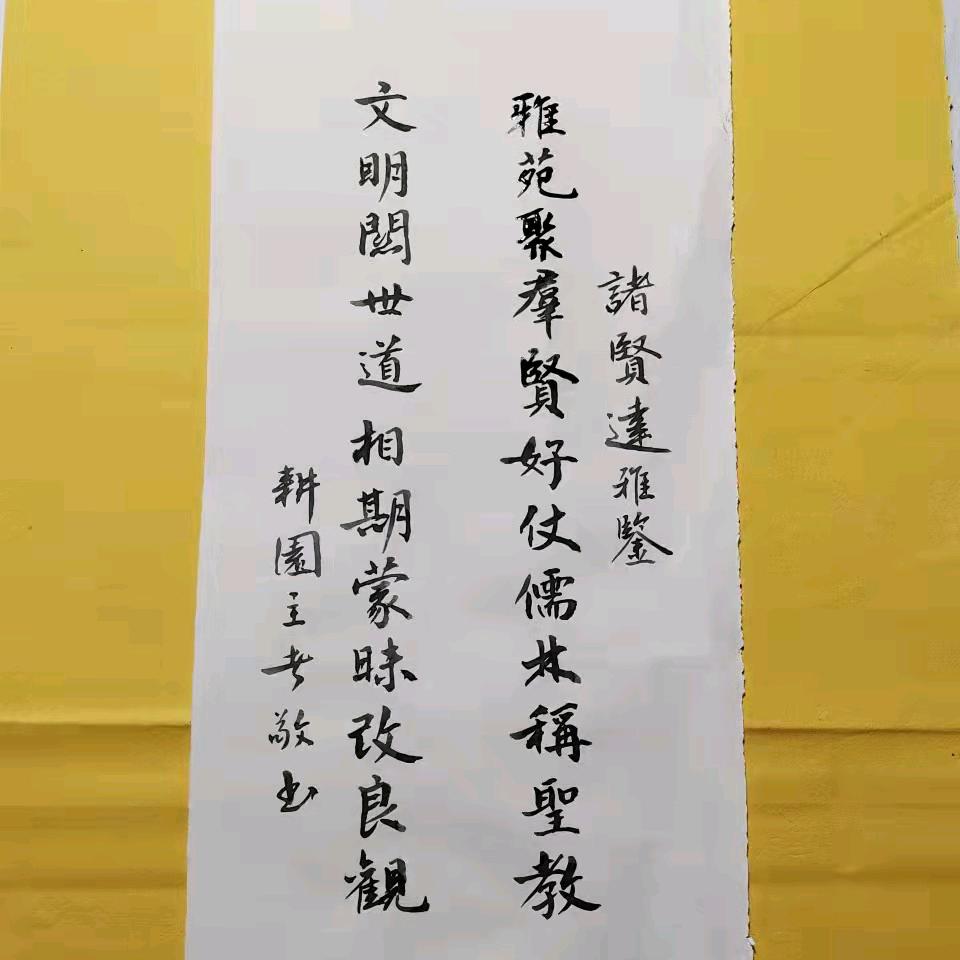 諸賢達雅鑒
雅苑聚羣賢好仗儒林稱聖教
文明開世道相期蒙昧改良觀
耕園主者敬书